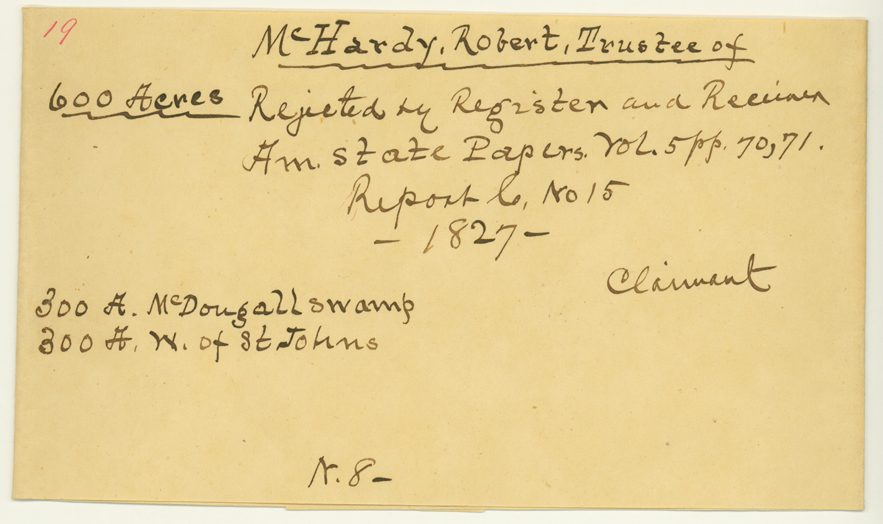 19
McHardy, Robert, Trustee of
600 Acres Rejected by Register and Receiver
Am. State Papers. Vol. 5 pp. 70,71.
Report 6, No 15
- 1827 -
Claimant
300 A. McDougall swamp
300 A. W. of St Johns
N. 8 -